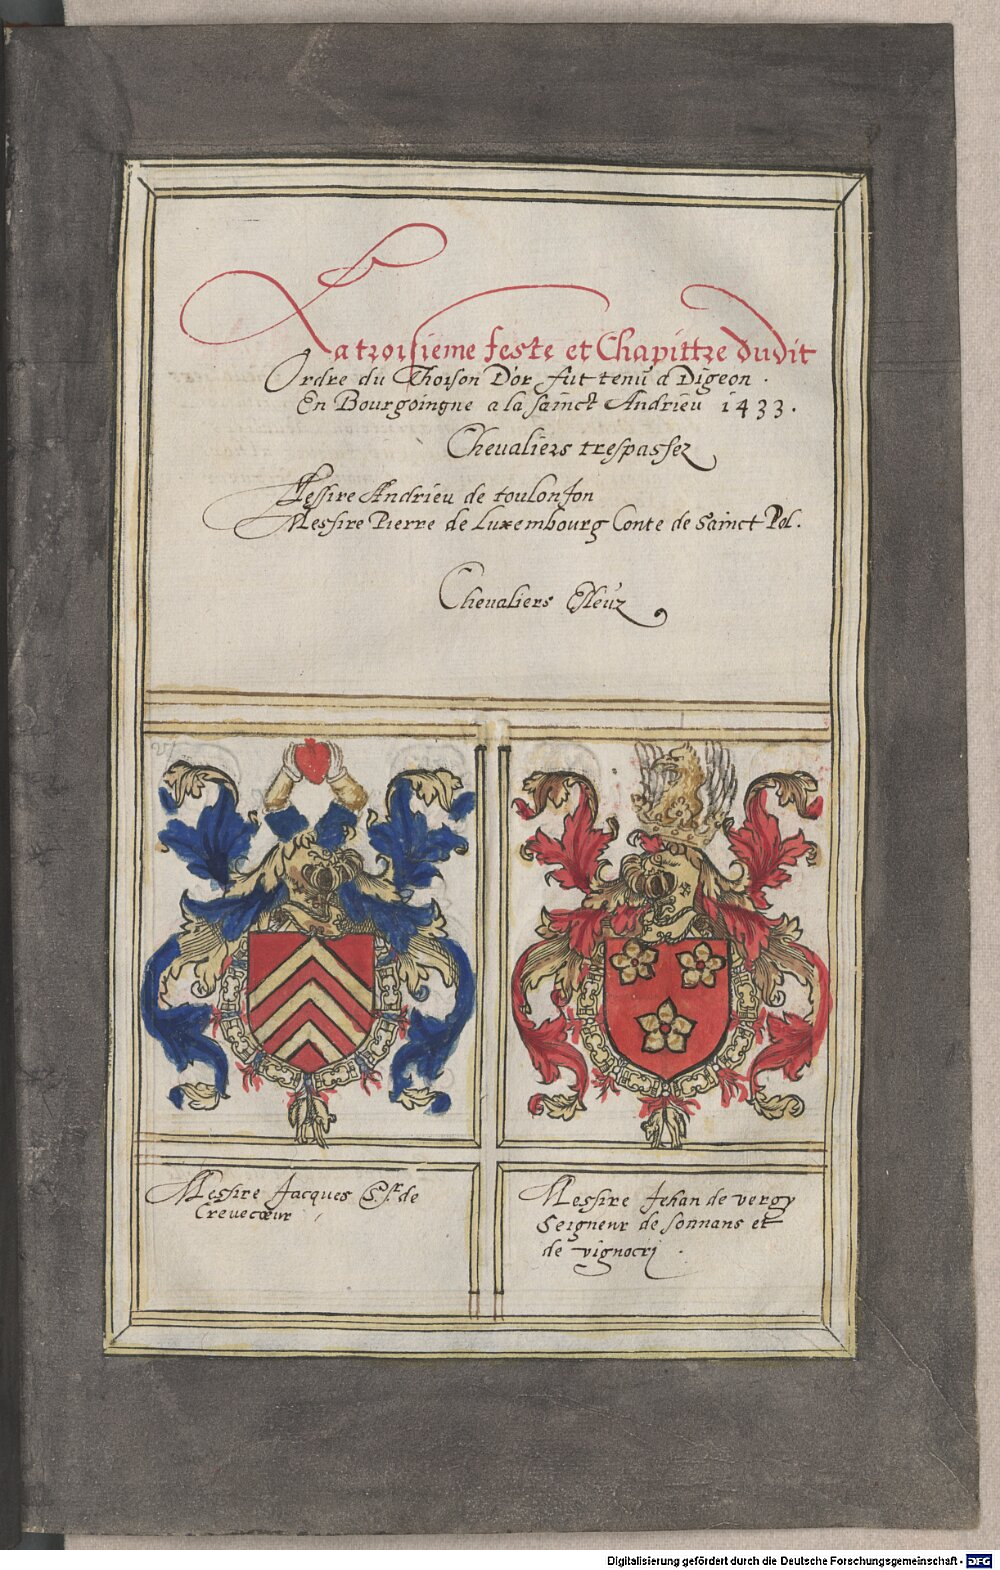 La troisieme feste et Chapittre dudit
Ordre du Thoison D'or fut tenu a Digeon.
En Bourgoingne a la sainct Andrieu 1433.
Chevaliers trespassez
Messire Andrieu de toulonjon
Messire Pierre de Luxembourg Conte de Sainct Pol.
Chevaliers Esleuz
Messire Jacques Sr. de
Crevecœur
Messire Jehan de vergy
Seigneur de sonnans et
de vignocri.
Digitalisierung gefördert durch die Deutsche Forschungsgemeinschaft - DFG